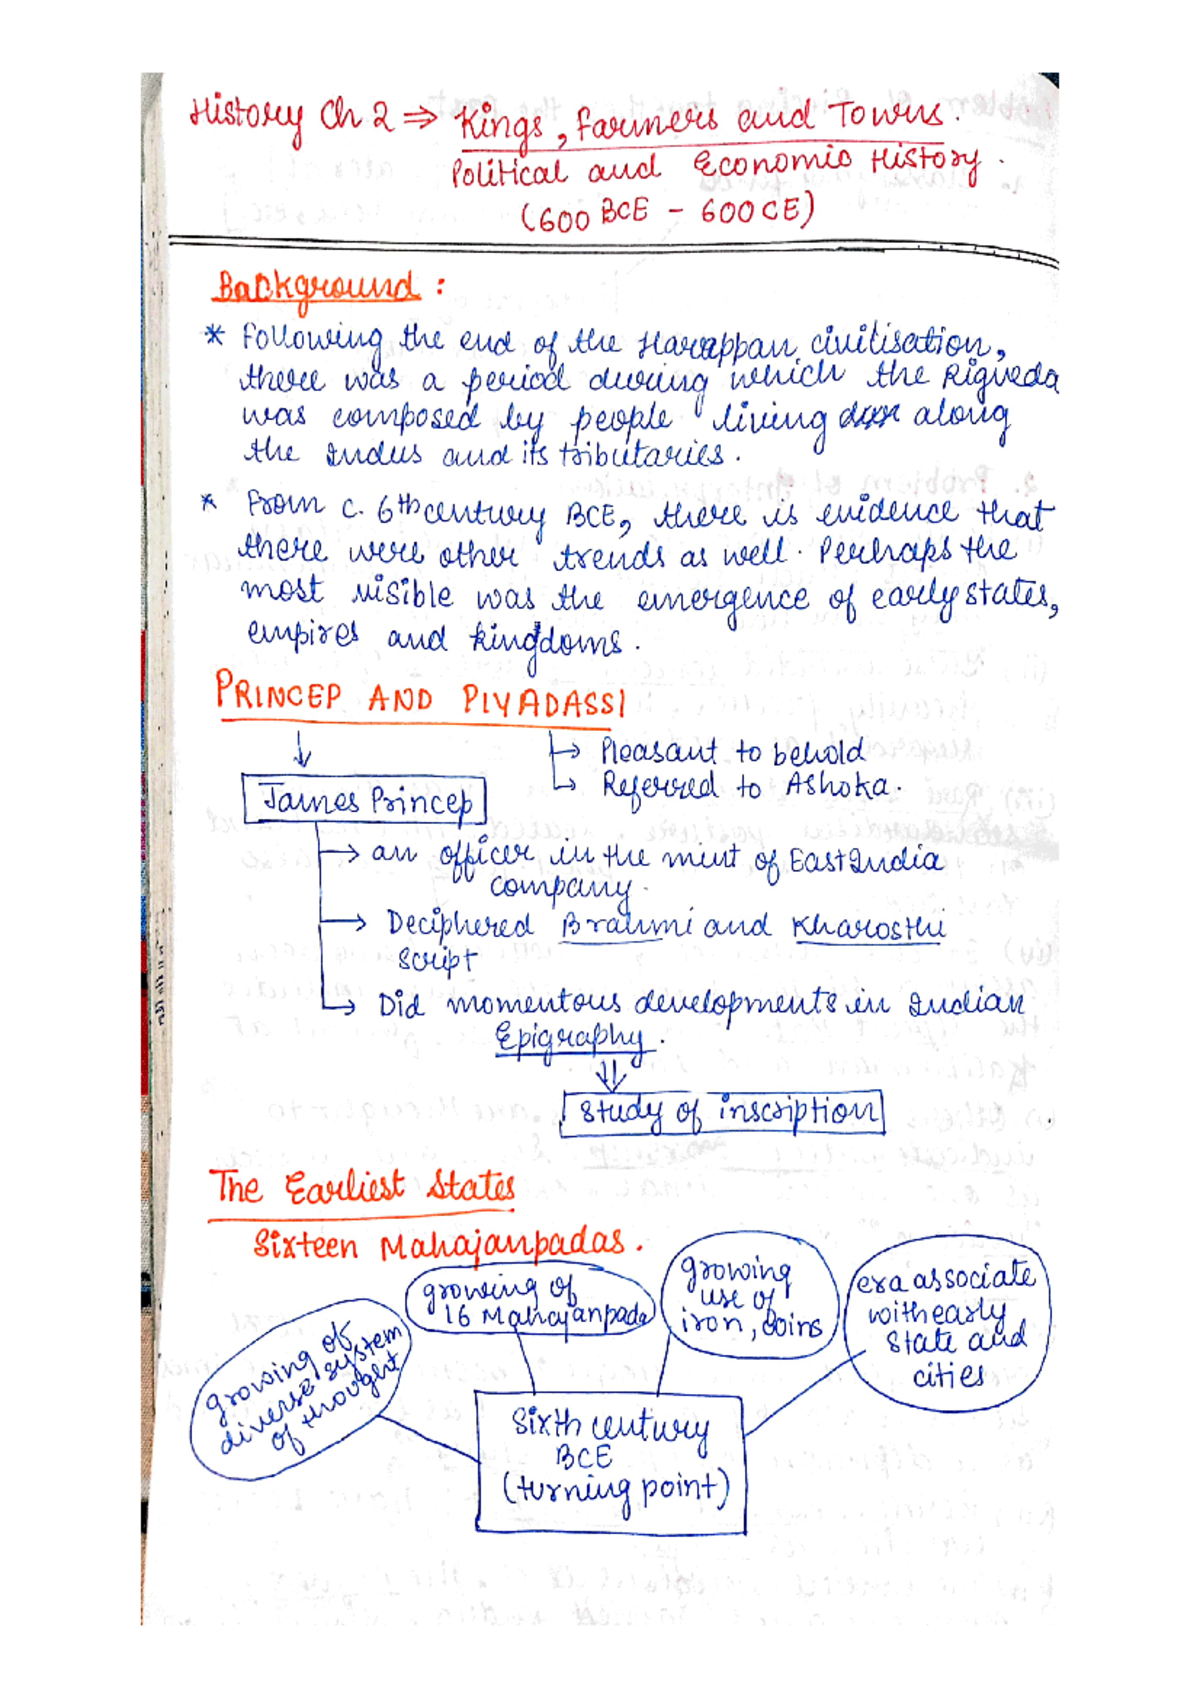 History Ch 2 ⇒ Kings, Farmers and Towns.
Political and Economic History.
(600 BCE - 600 CE)
Background :
* Following the end of the Harappan civilisation,
there was a period during which the Rigveda
was composed by people living along
the Indus and its tributaries.
* From c. 6th century BCE, there is evidence that
there were other trends as well. Perhaps the
most visible was the emergence of early states,
empires and kingdoms.
PRINCEP AND PIYADASSI
→ Pleasant to behold
→ Referred to Ashoka.
James Princep
→ an officer in the mint of East India
company.
→ Deciphered Brahmi and Kharosthi
script
→ Did momentous developments in Indian
Epigraphy.
study of inscription
The Earliest States
Sixteen Mahajanpadas.
growing of
diverse system
of thought
growing of
16 Mahajanpada
growing
use of
iron, coins
era associate
with early
state and
cities
Sixth century
BCE
(turning point)